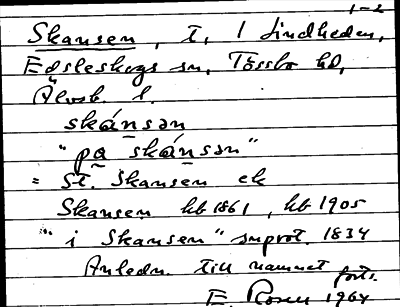 1-2
Skansen, t, 1 Lindheden,
Edsleskogs sn, Tössbo hd,
Älvsb. l.
skánsən
"pa skánsən"
= St. Skansen ek
Skansen hb 1861, hb 1905
"i Skansen" snprot. 1834
Anledn. till namnet forts.
E. Rosen 1964